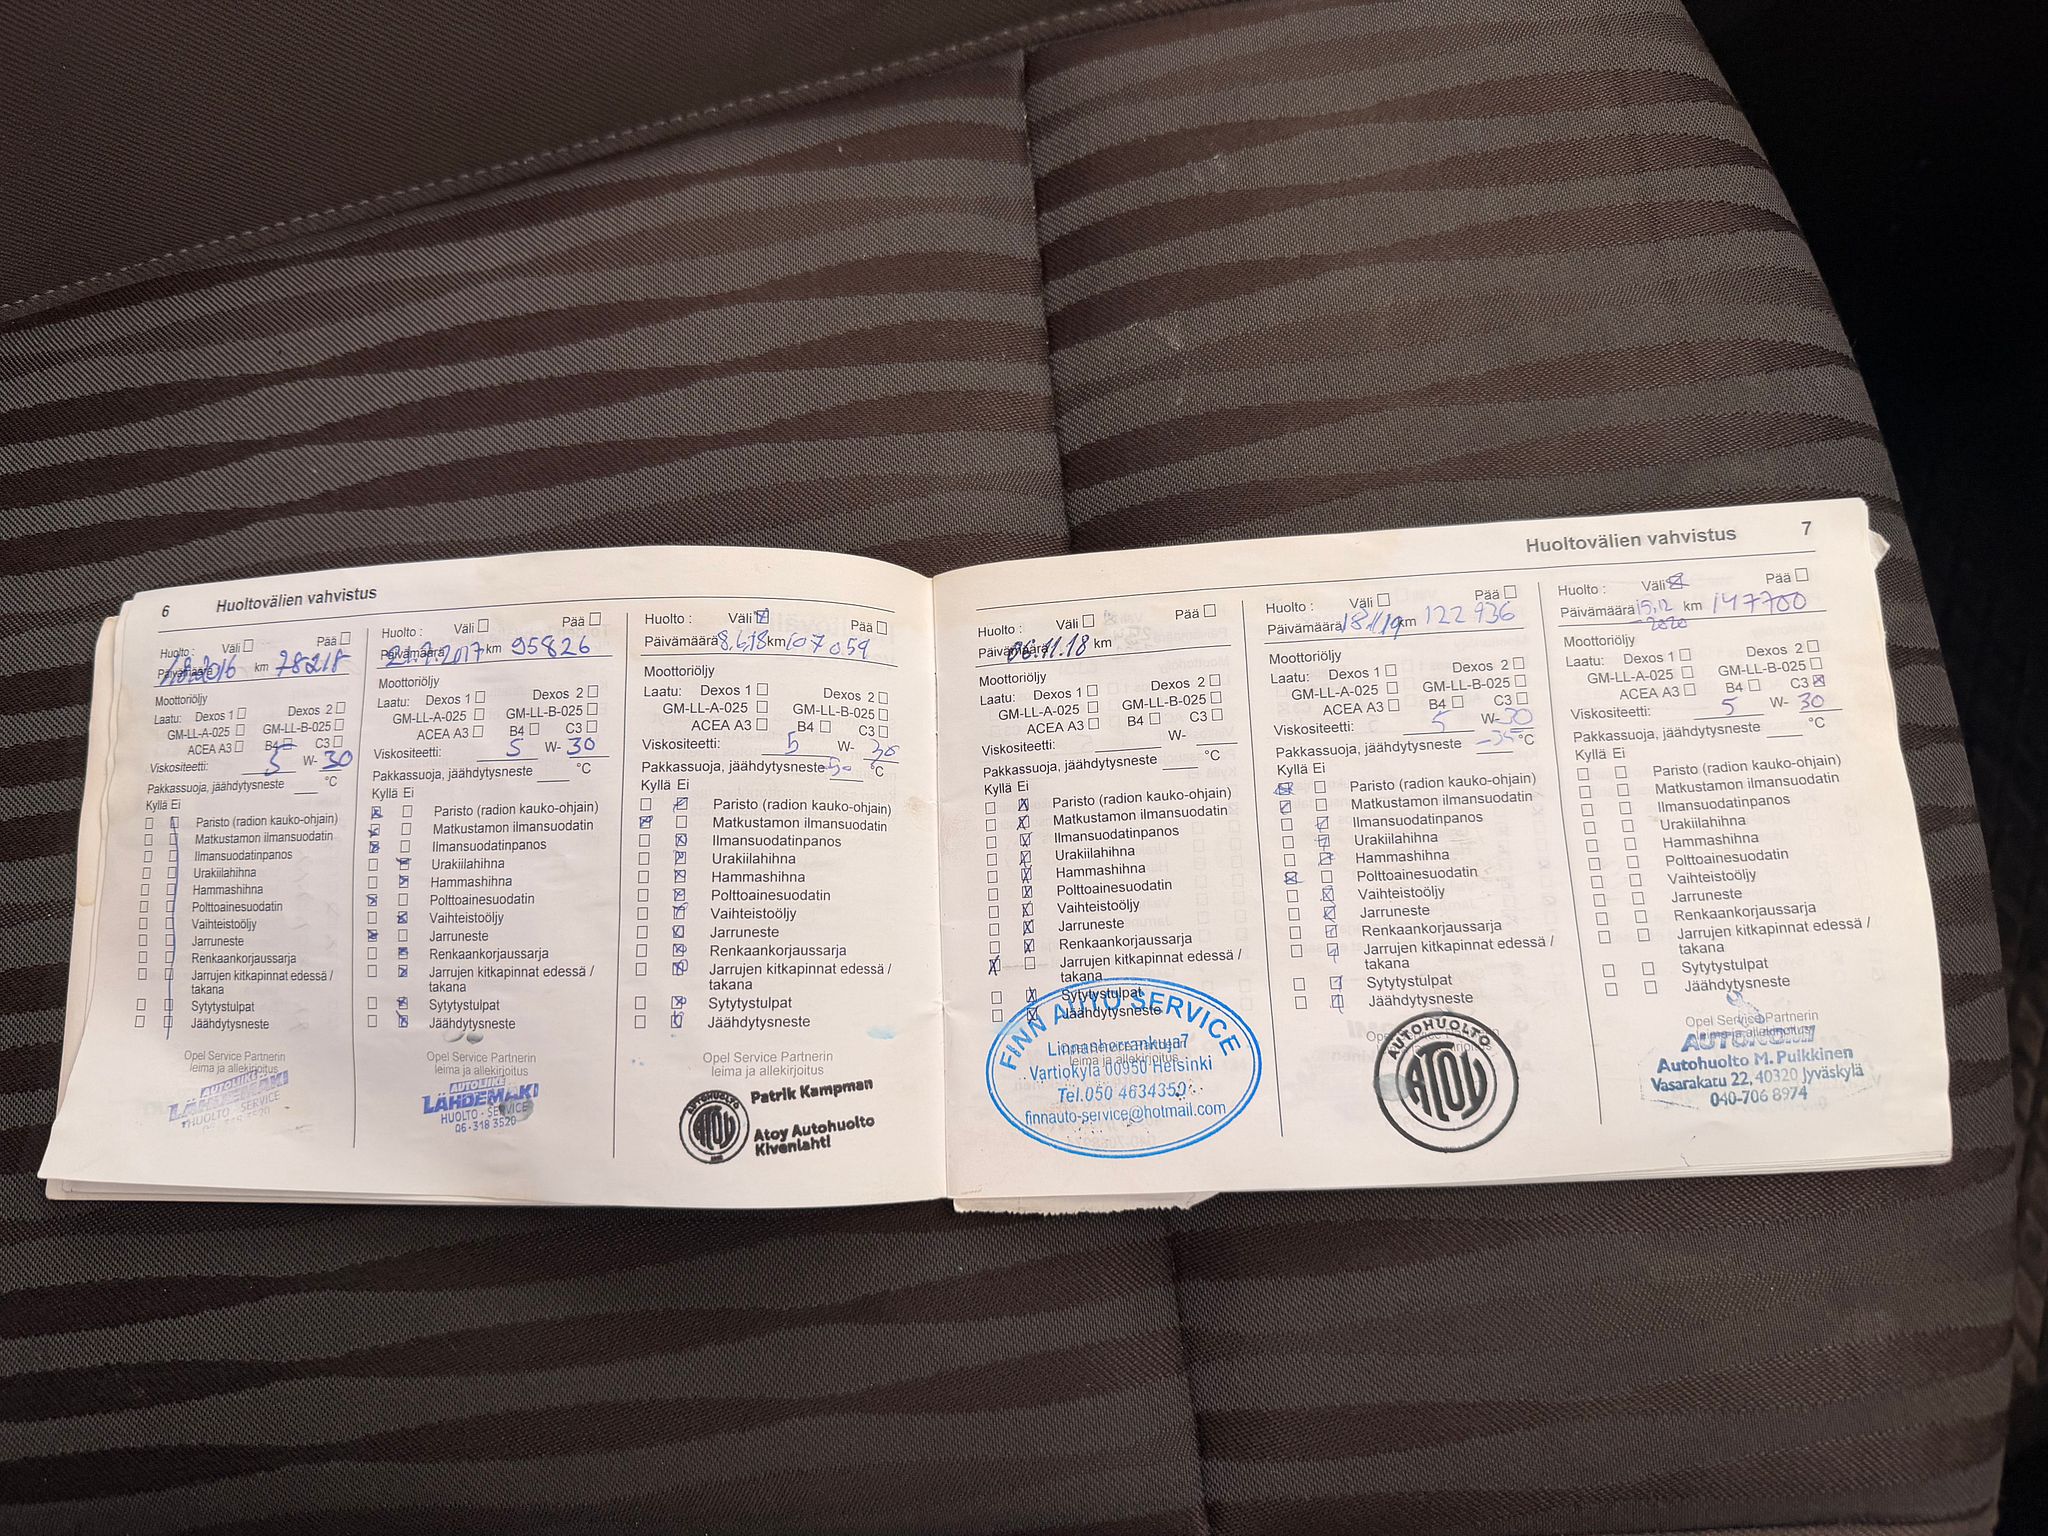 6 Huoltovälien vahvistus
Huolto : Väli Pää
Päivämäärä km 78218
Moottoriöljy
Laatu: Dexos 1 Dexos 2
GM-LL-A-025 GM-LL-B-025
ACEA A3 B4 C3
Viskositeetti: 5 W- 30
Pakkassuoja, jäähdytysneste °C
Kyllä Ei
Paristo (radion kauko-ohjain)
Matkustamon ilmansuodatin
Ilmansuodatinpanos
Urakiilahihna
Hammashihna
Polttoainesuodatin
Vaihteistoöljy
Jarruneste
Renkaankorjaussarja
Jarrujen kitkapinnat edessä /
takana
Sytytystulpat
Jäähdytysneste
Opel Service Partnerin
leima ja allekirjoitus
AUTOLIIKE
LÄHDEMÄKI
HUOLTO - SERVICE
Huolto : Väli Pää
Päivämäärä 21.7.2017 km 95826
Moottoriöljy
Laatu: Dexos 1 Dexos 2
GM-LL-A-025 GM-LL-B-025
ACEA A3 B4 C3
Viskositeetti: 5 W- 30
Pakkassuoja, jäähdytysneste °C
Kyllä Ei
Paristo (radion kauko-ohjain)
Matkustamon ilmansuodatin
Ilmansuodatinpanos
Urakiilahihna
Hammashihna
Polttoainesuodatin
Vaihteistoöljy
Jarruneste
Renkaankorjaussarja
Jarrujen kitkapinnat edessä /
takana
Sytytystulpat
Jäähdytysneste
Opel Service Partnerin
leima ja allekirjoitus
AUTOLIIKE
LÄHDEMÄKI
HUOLTO - SERVICE
06-318 3520
Huolto : Väli Pää
Päivämäärä 8.6.18 km 107059
Moottoriöljy
Laatu: Dexos 1 Dexos 2
GM-LL-A-025 GM-LL-B-025
ACEA A3 B4 C3
Viskositeetti: 5 W- 30
Pakkassuoja, jäähdytysneste °C
Kyllä Ei
Paristo (radion kauko-ohjain)
Matkustamon ilmansuodatin
Ilmansuodatinpanos
Urakiilahihna
Hammashihna
Polttoainesuodatin
Vaihteistoöljy
Jarruneste
Renkaankorjaussarja
Jarrujen kitkapinnat edessä /
takana
Sytytystulpat
Jäähdytysneste
Opel Service Partnerin
leima ja allekirjoitus
AUTOHUOLTO
ATOY
Patrik Kampman
Atoy Autohuolto
Kivenlahti
Huoltovälien vahvistus 7
Huolto : Väli Pää
Päivämäärä 06.11.18 km
Moottoriöljy
Laatu: Dexos 1 Dexos 2
GM-LL-A-025 GM-LL-B-025
ACEA A3 B4 C3
Viskositeetti: W-
Pakkassuoja, jäähdytysneste °C
Kyllä Ei
Paristo (radion kauko-ohjain)
Matkustamon ilmansuodatin
Ilmansuodatinpanos
Urakiilahihna
Hammashihna
Polttoainesuodatin
Vaihteistoöljy
Jarruneste
Renkaankorjaussarja
Jarrujen kitkapinnat edessä /
takana
Sytytystulpat
Jäähdytysneste
leima ja allekirjoitus
FINN AUTO SERVICE
Linnanherrankuja7
Vartiokylä 00950 Helsinki
Tel.050 4634350
finnauto-service@hotmail.com
Huolto : Väli Pää
Päivämäärä 18.11.19 km 122 936
Moottoriöljy
Laatu: Dexos 1 Dexos 2
GM-LL-A-025 GM-LL-B-025
ACEA A3 B4 C3
Viskositeetti: 5 W- 30
Pakkassuoja, jäähdytysneste -35 °C
Kyllä Ei
Paristo (radion kauko-ohjain)
Matkustamon ilmansuodatin
Ilmansuodatinpanos
Urakiilahihna
Hammashihna
Polttoainesuodatin
Vaihteistoöljy
Jarruneste
Renkaankorjaussarja
Jarrujen kitkapinnat edessä /
takana
Sytytystulpat
Jäähdytysneste
AUTOHUOLTO
ATOY
Huolto : Väli Pää
Päivämäärä 15.12 km 147700
2020
Moottoriöljy
Laatu: Dexos 1 Dexos 2
GM-LL-A-025 GM-LL-B-025
ACEA A3 B4 C3
Viskositeetti: 5 W- 30
Pakkassuoja, jäähdytysneste °C
Kyllä Ei
Paristo (radion kauko-ohjain)
Matkustamon ilmansuodatin
Ilmansuodatinpanos
Urakiilahihna
Hammashihna
Polttoainesuodatin
Vaihteistoöljy
Jarruneste
Renkaankorjaussarja
Jarrujen kitkapinnat edessä /
takana
Sytytystulpat
Jäähdytysneste
Opel Service Partnerin
leima ja allekirjoitus
AUTONOMI
Autohuolto M. Pulkkinen
Vasarakatu 22, 40320 Jyväskylä
040-706 8974